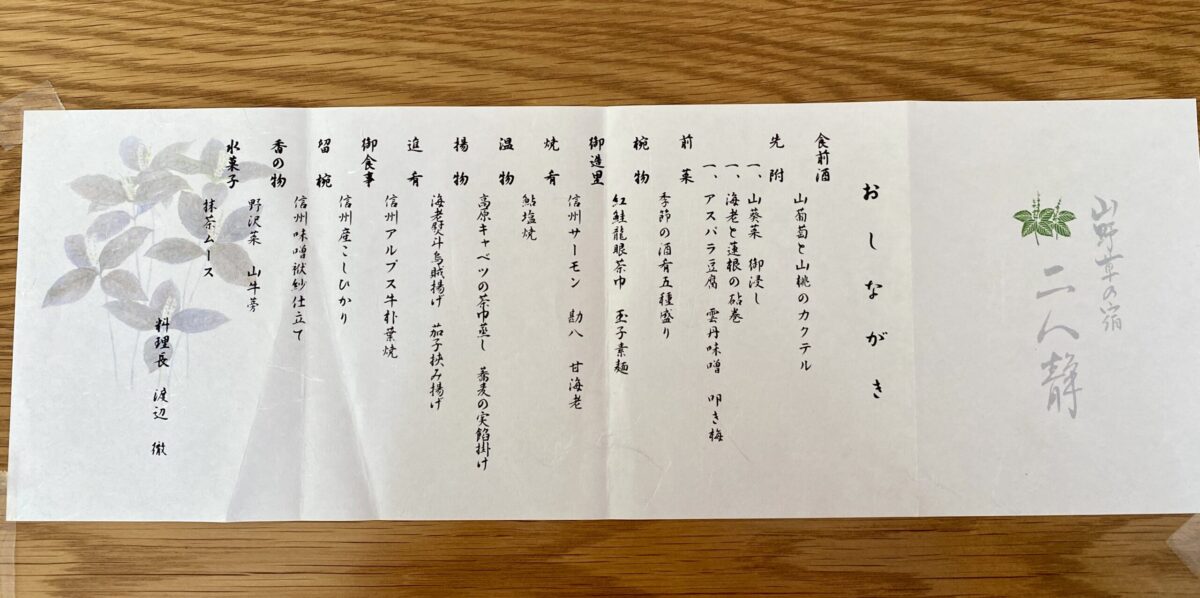 山野草の宿
二人静
おしながき
食前酒
山葡萄と山桃のカクテル
先附
一、山葵菜 御浸し
一、海老と蓮根の砧巻
一、アスパラ豆腐 雲丹味噌 叩き梅
前菜
季節の酒肴五種盛り
椀物
紅鮭龍眼茶巾 玉子素麺
御造里
信州サーモン 勘八 甘海老
焼肴
鮎塩焼
温物
高原キャベツの茶巾蒸し 蕎麦の実餡掛け
揚物
海老熨斗烏賊揚げ 茄子挟み揚げ
進肴
信州アルプス牛朴葉焼
御食事
信州産こしひかり
留椀
信州味噌袱紗仕立て
香の物
野沢菜 山牛蒡
水菓子
抹茶ムース
料理長 渡辺 徹